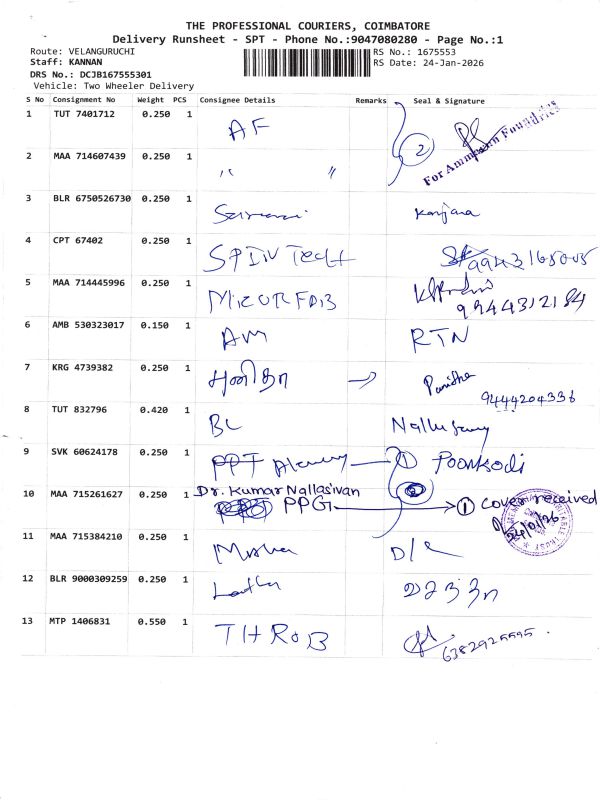 THE PROFESSIONAL COURIERS, COIMBATORE
Delivery Runsheet - SPT - Phone No.:9047080280 - Page No.:1
Route: VELANGURUCHI RS No.: 1675553
Staff: KANNAN RS Date: 24-Jan-2026
DRS No.: DCJB167555301
Vehicle: Two Wheeler Delivery
S No Consignment No Weight PCS Consignee Details Remarks Seal & Signature
1 TUT 7401712 0.250 1 AF 2 For Ammarun Foundries
2 MAA 714607439 0.250 1 " "
3 BLR 6750526730 0.250 1
4 CPT 67402 0.250 1 SPDIV Tech 9943165005
5 MAA 714445996 0.250 1 MICURFAB 9944312184
6 AMB 530323017 0.150 1 AM RTN
7 KRG 4739382 0.250 1 புனிதா → Punitha
9444204336
8 TUT 832796 0.420 1 BL
9 SVK 60624178 0.250 1 1 Poonkodi
10 MAA 715261627 0.250 1 Dr. Kumar Nallasivan
PPG → 1 cover received
24/01/26
11 MAA 715384210 0.250 1
12 BLR 9000309259 0.250 1
13 MTP 1406831 0.550 1 THROB 6382925595